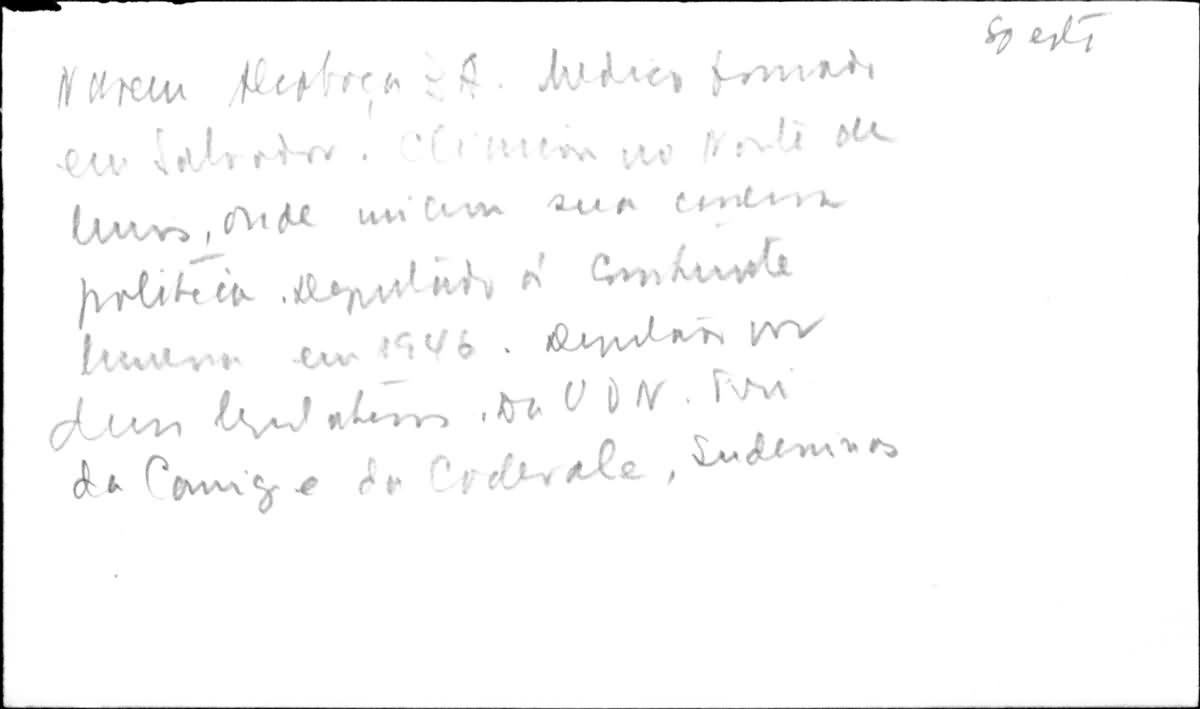 Médico formado
em Salvador. Clinicou no Norte de
Minas, onde iniciou sua carreira
política. Deputado à Constituinte
Mineira em 1946. Deputado por
duas legislaturas. Da UDN. Foi
da Camig e da Codevale, Sudeminas